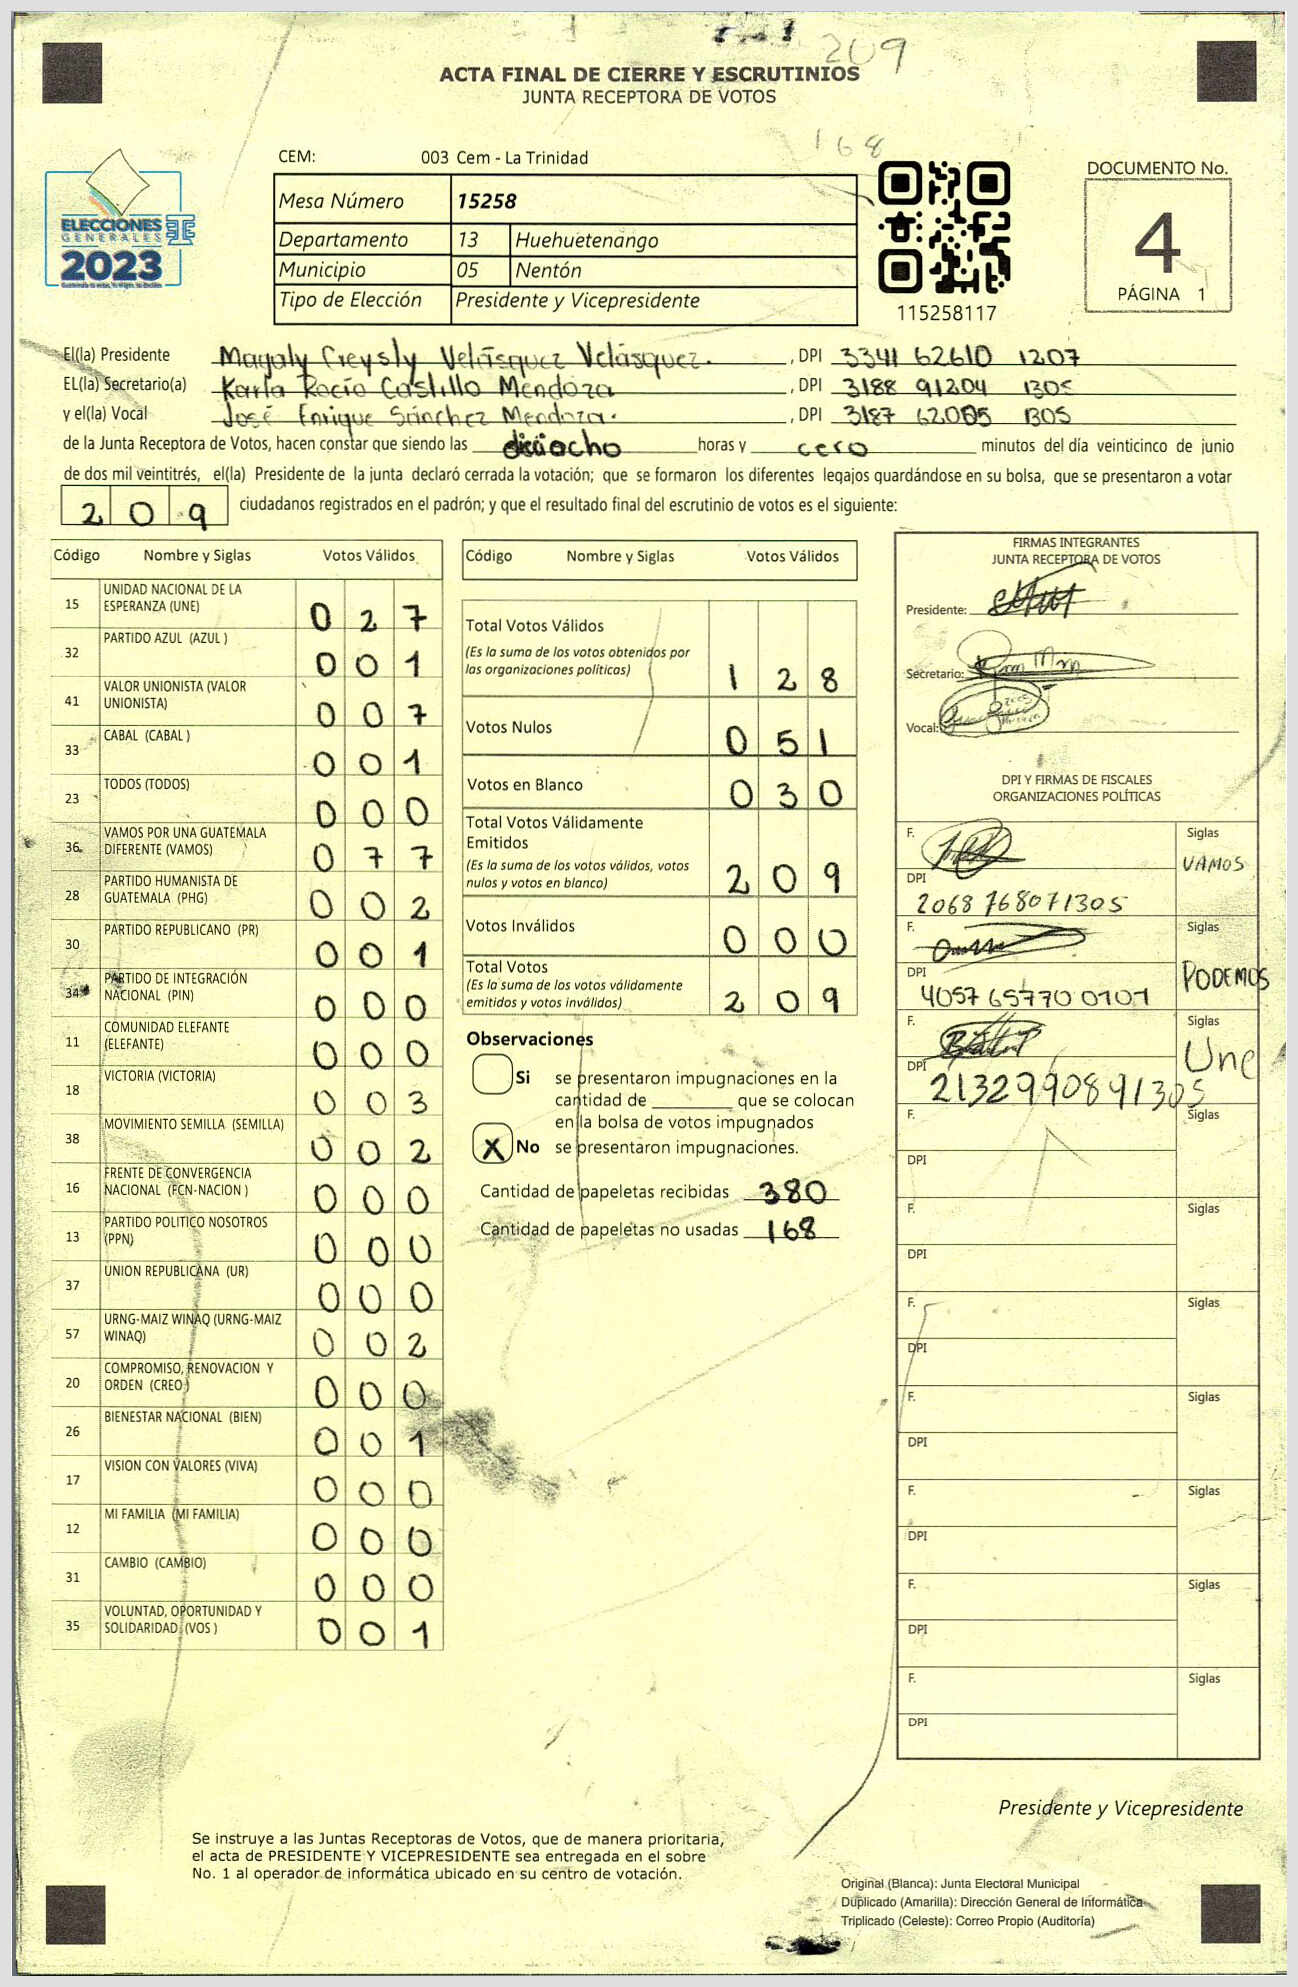 209
ACTA FINAL DE CIERRE Y ESCRUTINIOS
JUNTA RECEPTORA DE VOTOS
168
CEM: 003 Cem - La Trinidad
Mesa Número 15258
Departamento 13 Huehuetenango
Municipio 05 Nentón
Tipo de Elección Presidente y Vicepresidente
ELECCIONES
GENERALES
2023
115258117
DOCUMENTO No.
4
PÁGINA 1
El(la) Presidente Magaly Greysly Velásquez Velásquez. , DPI 3341 62610 1207
EL(la) Secretario(a) Karla Rocío Castillo Mendoza , DPI 3188 91204 1305
y el(la) Vocal José Enrique Sánchez Mendoza. , DPI 3187 62005 1305
de la Junta Receptora de Votos, hacen constar que siendo las dieciocho horas y cero minutos del día veinticinco de junio
de dos mil veintitrés, el(la) Presidente de la junta declaró cerrada la votación; que se formaron los diferentes legajos guardándose en su bolsa, que se presentaron a votar
209 ciudadanos registrados en el padrón; y que el resultado final del escrutinio de votos es el siguiente:
Código Nombre y Siglas Votos Válidos
15 UNIDAD NACIONAL DE LA
ESPERANZA (UNE) 027
32 PARTIDO AZUL (AZUL ) 001
41 VALOR UNIONISTA (VALOR
UNIONISTA) 007
33 CABAL (CABAL ) 001
23 TODOS (TODOS) 000
36 VAMOS POR UNA GUATEMALA
DIFERENTE (VAMOS) 077
28 PARTIDO HUMANISTA DE
GUATEMALA (PHG) 002
30 PARTIDO REPUBLICANO (PR) 001
34 PARTIDO DE INTEGRACIÓN
NACIONAL (PIN) 000
11 COMUNIDAD ELEFANTE
(ELEFANTE) 000
18 VICTORIA (VICTORIA) 003
38 MOVIMIENTO SEMILLA (SEMILLA) 002
16 FRENTE DE CONVERGENCIA
NACIONAL (FCN-NACION ) 000
13 PARTIDO POLITICO NOSOTROS
(PPN) 000
37 UNION REPUBLICANA (UR) 000
57 URNG-MAIZ WINAQ (URNG-MAIZ
WINAQ) 002
20 COMPROMISO, RENOVACION Y
ORDEN (CREO ) 000
26 BIENESTAR NACIONAL (BIEN) 001
17 VISION CON VALORES (VIVA) 000
12 MI FAMILIA (MI FAMILIA) 000
31 CAMBIO (CAMBIO) 000
35 VOLUNTAD, OPORTUNIDAD Y
SOLIDARIDAD (VOS ) 001
Código Nombre y Siglas Votos Válidos
Total Votos Válidos
(Es la suma de los votos obtenidos por
las organizaciones políticas) 128
Votos Nulos 051
Votos en Blanco 030
Total Votos Válidamente
Emitidos
(Es la suma de los votos válidos, votos
nulos y votos en blanco) 209
Votos Inválidos 000
Total Votos
(Es la suma de los votos válidamente
emitidos y votos inválidos) 209
Observaciones
Si se presentaron impugnaciones en la
cantidad de ________ que se colocan
en la bolsa de votos impugnados
X No se presentaron impugnaciones.
Cantidad de papeletas recibidas 380
Cantidad de papeletas no usadas 168
FIRMAS INTEGRANTES
JUNTA RECEPTORA DE VOTOS
Presidente:
Secretario:
Vocal:
DPI Y FIRMAS DE FISCALES
ORGANIZACIONES POLÍTICAS
F. Siglas
VAMOS
DPI
2068 768071305
F. Siglas
DPI PODEMOS
4057 65770 0101
F. Siglas
Une
DPI
2132990891305
F. Siglas
DPI
F. Siglas
DPI
F. Siglas
DPI
F. Siglas
DPI
F. Siglas
DPI
F. Siglas
DPI
F. Siglas
DPI
Presidente y Vicepresidente
Se instruye a las Juntas Receptoras de Votos, que de manera prioritaria,
el acta de PRESIDENTE Y VICEPRESIDENTE sea entregada en el sobre
No. 1 al operador de informática ubicado en su centro de votación.
Original (Blanca): Junta Electoral Municipal
Duplicado (Amarilla): Dirección General de Informática
Triplicado (Celeste): Correo Propio (Auditoría)